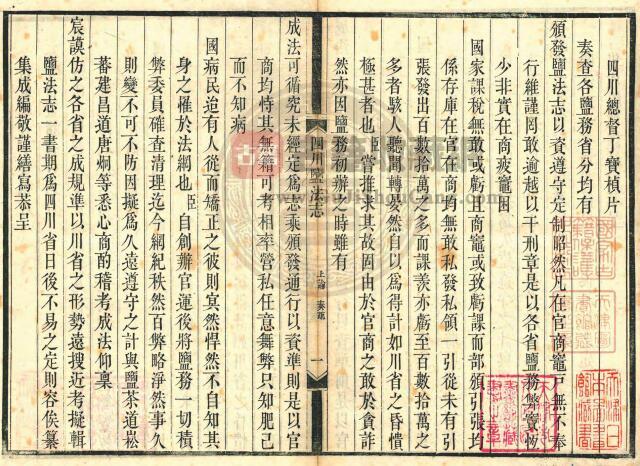 四川總督丁寶楨片
奏查各鹽務省分均有
頒發鹽法志以資遵守定制昭然凡在官商竈戶無不奉
行維謹罔敢逾越以干刑章是以各省鹽務弊竇恆
少非實在商疲竈困
國家課稅無敢或虧且商竈或虧課而部頒引張均
係存庫在官在商均無敢私發私領一引從未有引
張發出百數拾萬之多而課羨亦虧至百數拾萬之
多者駭人聽聞轉晏然自以為得計如川省之昏憒
極甚者也臣嘗推求其故固由於官商之敢於貪詐
然亦因鹽務初辦之時雖有
四川鹽法志
上諭 奏疏
一
成法可循究未經定為志乘頒發通行以資準則是以官
商均恃其無籍可考相率營私任意舞弊只知肥己
而不知病
國病民迨有人從而矯正之彼則寘然悍然不自知其
身之罹於法網也臣自創辦官運後將鹽務一切積
弊委員確查清理迄今綱紀秩然百弊略淨然事久
則變不可不防因擬為久遠遵守之計與鹽茶道崧
蕃建昌道唐炯等悉心商酌稽考成法仰稟
宸謨仿之各省之成規準以川省之形勢遠搜近考擬輯
鹽法志一書期為四川省日後不易之定則容俟纂
集成編敬謹繕寫恭呈